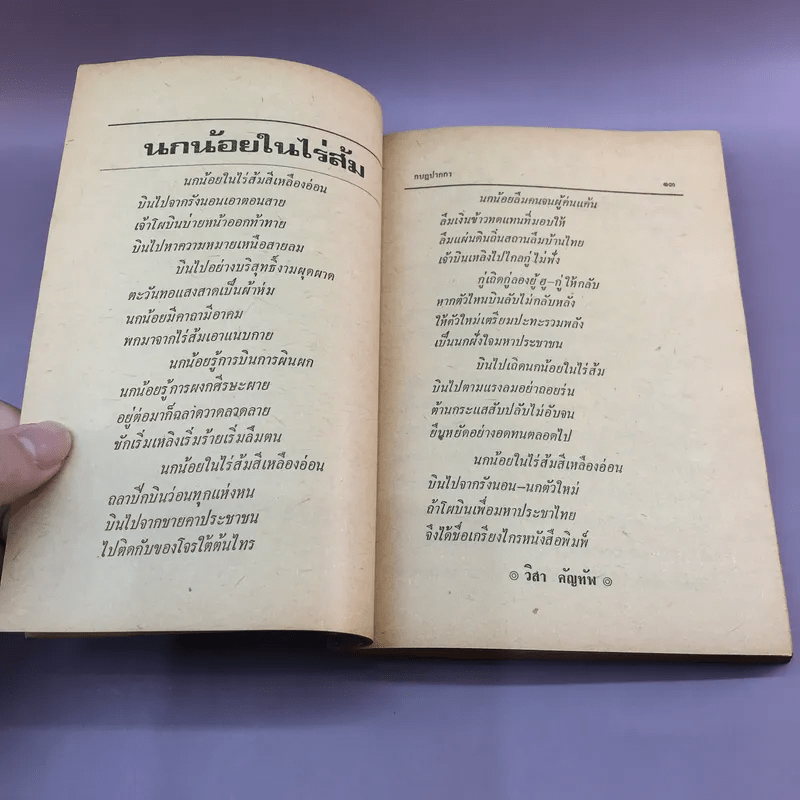 นกน้อยในไร่ส้ม
นกน้อยในไร่ส้มสีเหลืองอ่อน
บินไปจากรังนอนเอาตอนสาย
เจ้าโผบินบ่ายหน้าออกท้าทาย
บินไปหาความหมายเหนือสายลม
บินไปอย่างบริสุทธิ์งามผุดผาด
ตะวันทอแสงสาดเป็นผ้าห่ม
นกน้อยมีคาถามีอาคม
พกมาจากไร่ส้มเอาแนบกาย
นกน้อยรู้การบินการผินผก
นกน้อยรู้การผงกศีรษะผาย
อยู่ต่อมาก็ฉลาดวาดลวดลาย
ชักเริ่มเหลิงเริ่มร้ายเริ่มลืมตน
นกน้อยในไร่ส้มสีเหลืองอ่อน
ถลาปีกบินว่อนทุกแห่งหน
บินไปจากชายคาประชาชน
ไปติดกับของโจรใต้ต้นไทร
กบฏปากกา
๑๓
นกน้อยลืมคนจนผู้ค่นแค้น
ลืมเงินข้าวทดแทนที่มอบให้
ลืมแผ่นดินถิ่นสถานลืมบ้านไทย
เจ้าบินเหลิงไปไกลกู่ไม่ฟัง
กู่เถิดกู่ลองยู้ ฮู-กู่ ให้กลับ
หากตัวไหนบินลับไม่กลับหลัง
ให้ตัวใหม่เตรียมปะทะรวมพลัง
เป็นนกฝั่งใจมหาประชาชน
บินไปเถิดนกน้อยในไร่ส้ม
บินไปตามแรงลมอย่าถอยร่น
ต้านกระแสสับปลับไม่อับจน
ยืนหยัดอย่างอดทนตลอดไป
นกน้อยในไร่ส้มสีเหลืองอ่อน
บินไปจากรังนอน-นกตัวใหม่
ถ้าโผบินเพื่อมหาประชาไทย
จึงได้ชื่อเกรียงไกรหนังสือพิมพ์
๏ วิสา คัญทัพ ๏